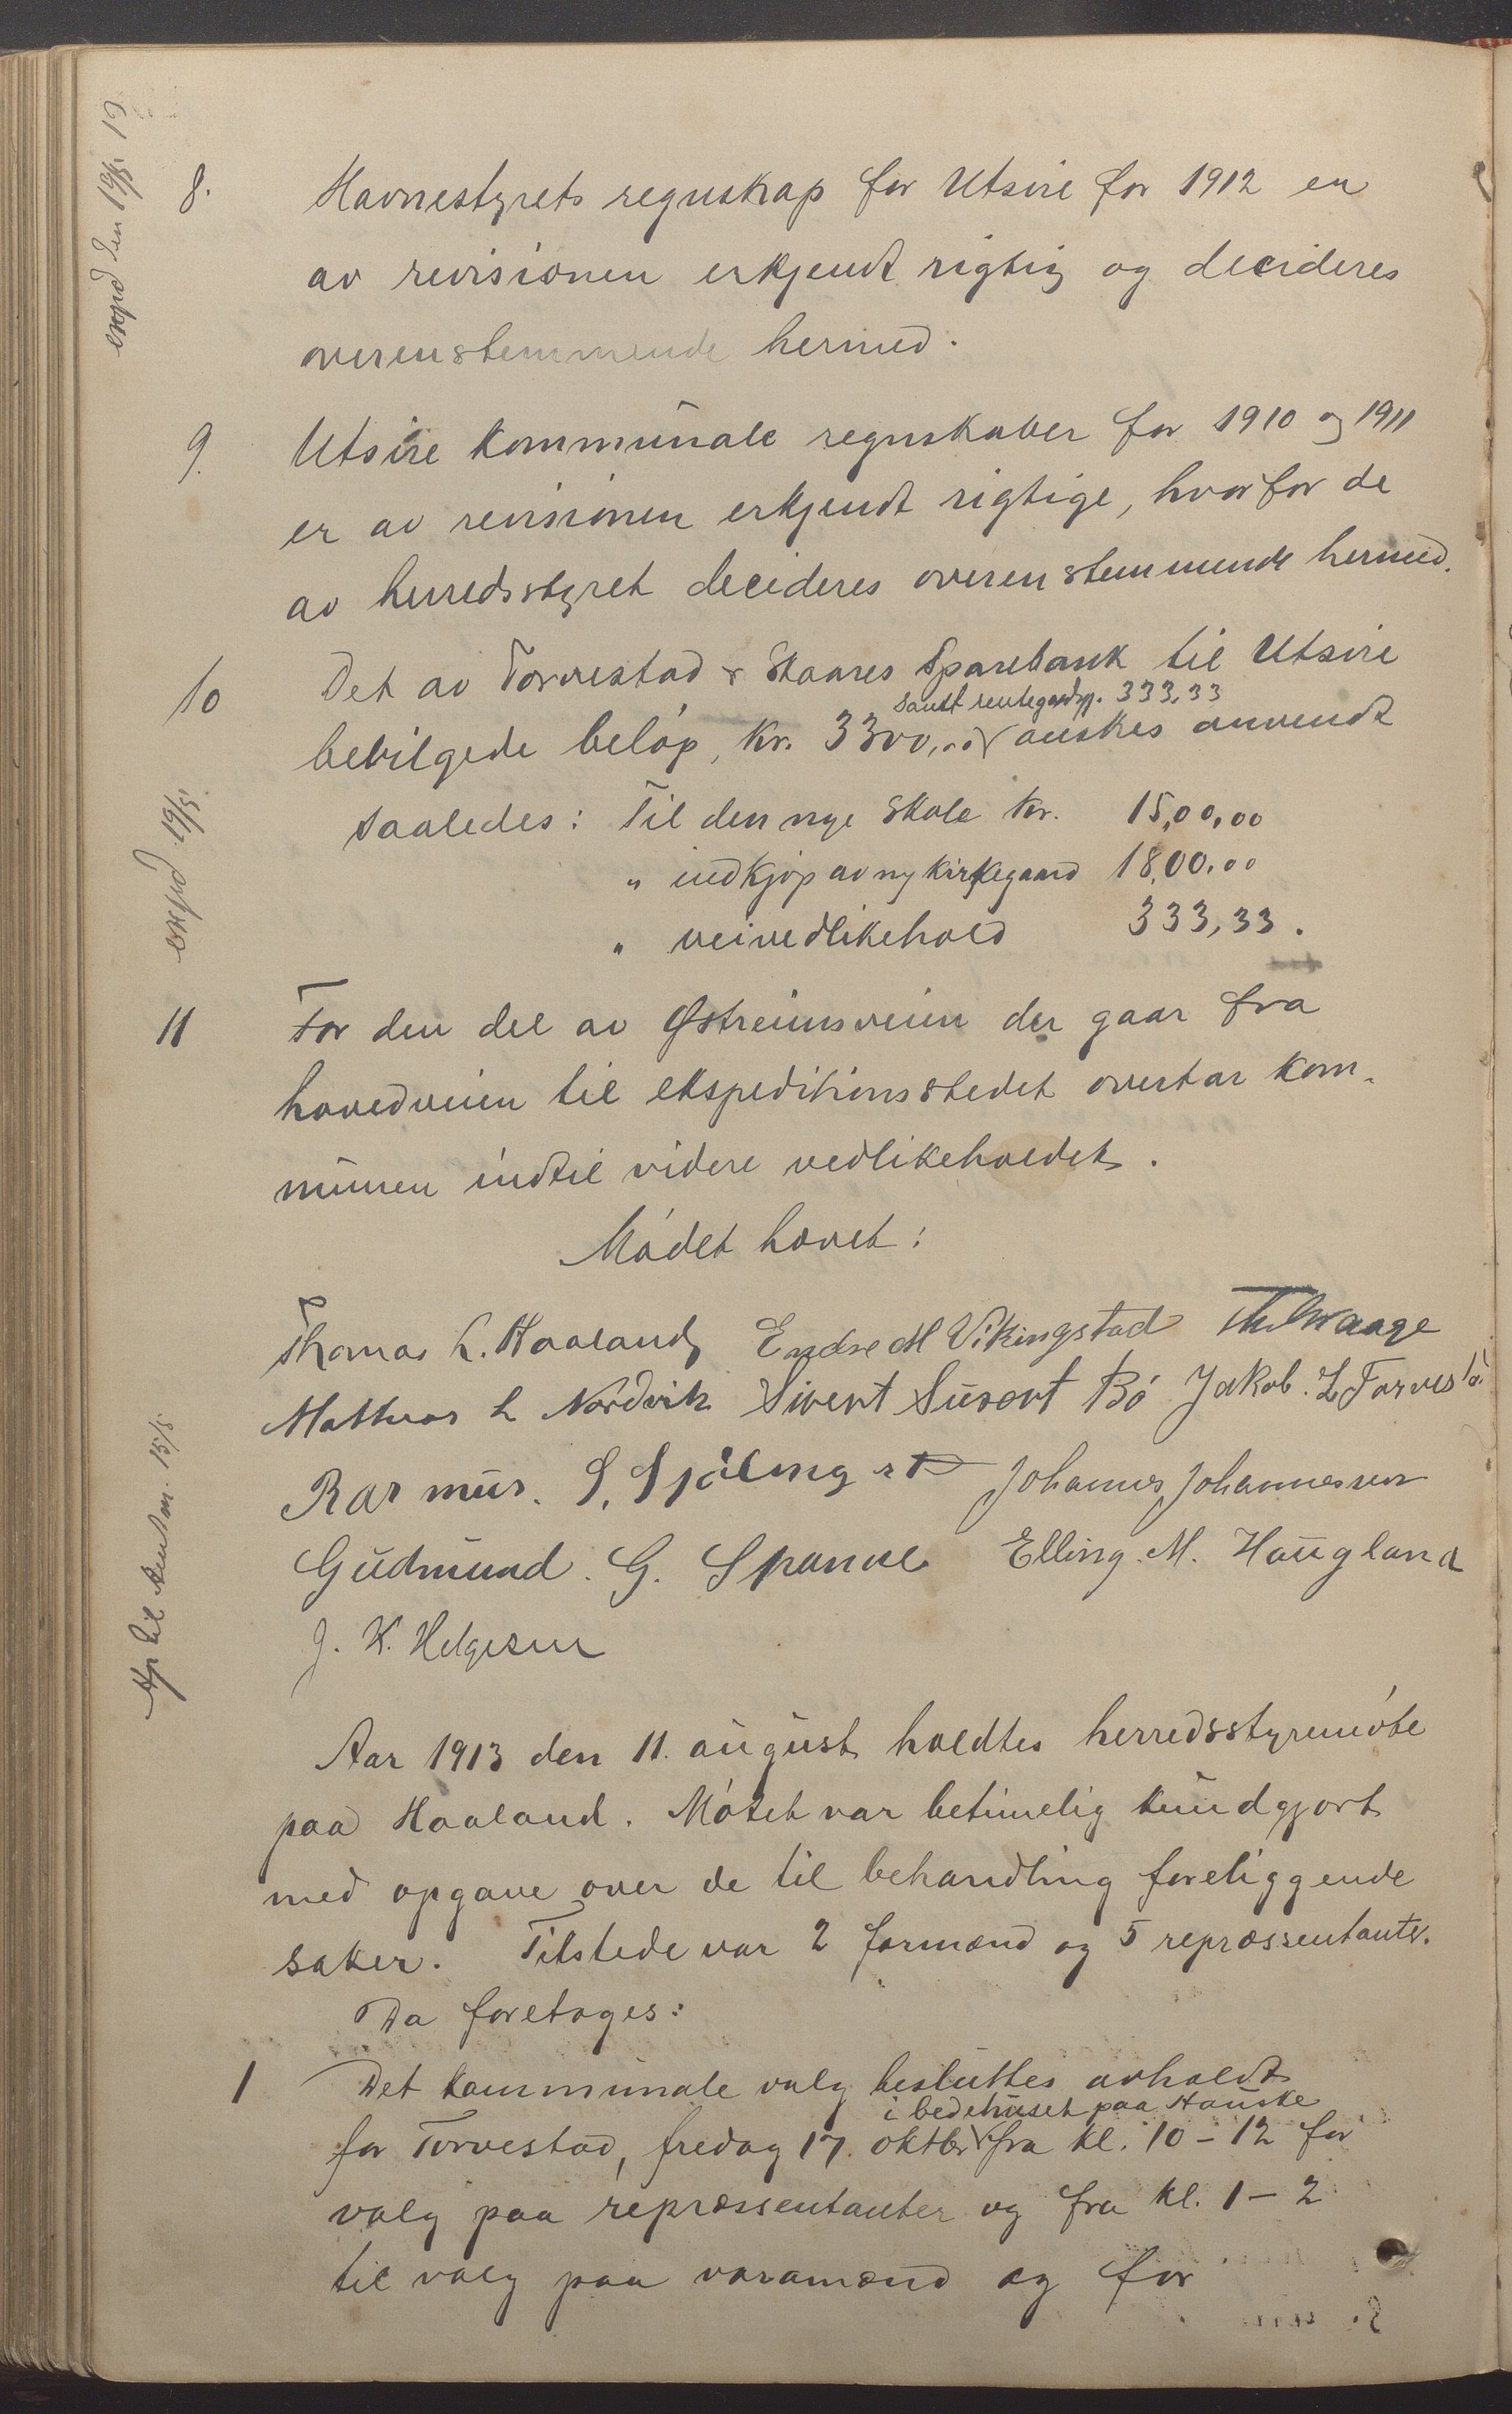 8. Havnestyrets regnskap for Utsire for 1912 er
av revisionen erkjendt rigtig og decideres
overenstemmende hermed.
9. Utsire kommunale regnskaber for 1910 og 1911
er av revisionen erkjendt rigtige, hvorfor de
av herredsstyret decideres overenstemmende hermed.
10 Det av Torvestad & Skaares Sparebank til Utsire
samt 333,33
bevilgede beløp, kr. 3300,00 ønskes anvendt
saaledes: Til den nye skole kr. 15,00,00
" indkjøp av ny kirkegaard 18,00,00
" veivedlikehold 333,33.
11 For den del av Østreimsveien der gaar fra
hovedveien til ekspeditionsstedet overtar kom-
munen indtil videre vedlikeholdet.
Mødet hævet:
Thomas L. Haaland Endre M Vikingstad Waage
Mathias L Nordvik Sivert Susort Bø Jakob. L Torvestà
Rasmus. S. Johannes Johannessen
Gudmund. G. Spanne Elling. M. Haugland
J. K. Helgesen
Aar 1913 den 11. august holdtes herredsstyremøte
paa Haaland. Møtet var betimelig kundgjort
med opgave over de til behandling foreliggende
saker. Tilstede var 2 formænd og 5 repræssentanter.
Da foretoges:
1 Det kommunale valg besluttes avholdt
i bedehuset paa Hauske
for Torvestad, fredag 17. oktbr fra kl. 10 - 12 for
valg paa repræssentanter og fra kl. 1 - 2
til valg paa varamænd og for
exped den 19/5 13
exped 19/5